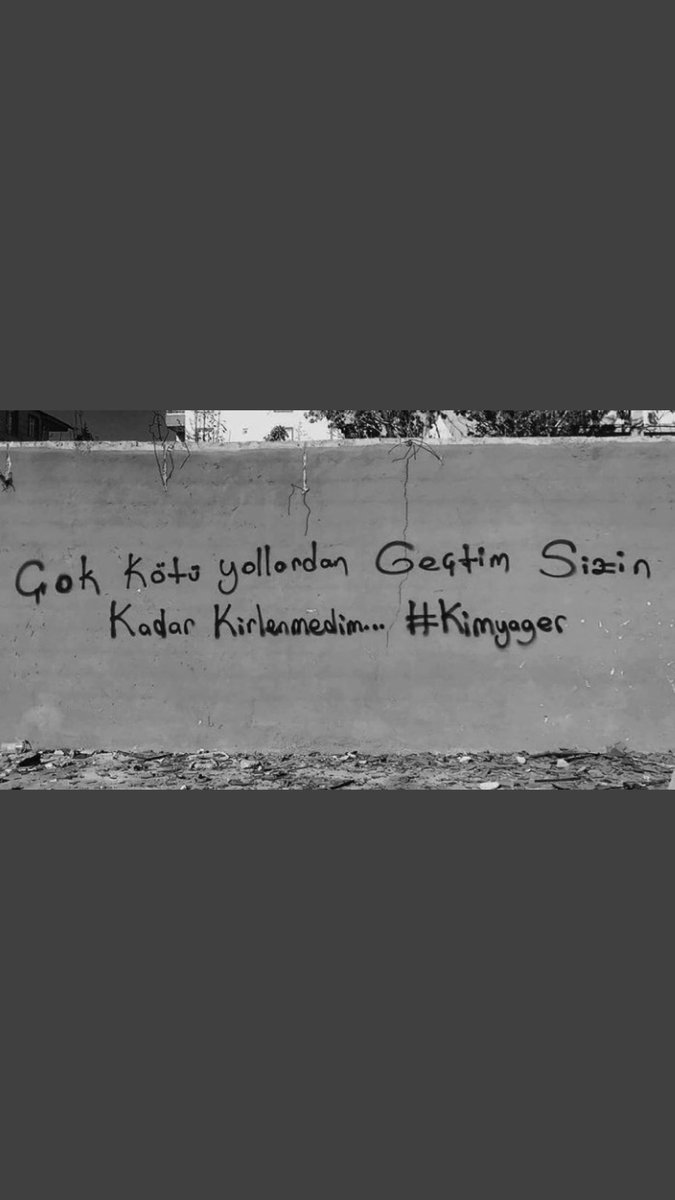 Çok Kötü yollardan Geçtim Sizin
Kadar Kirlenmedim... #Kimyager